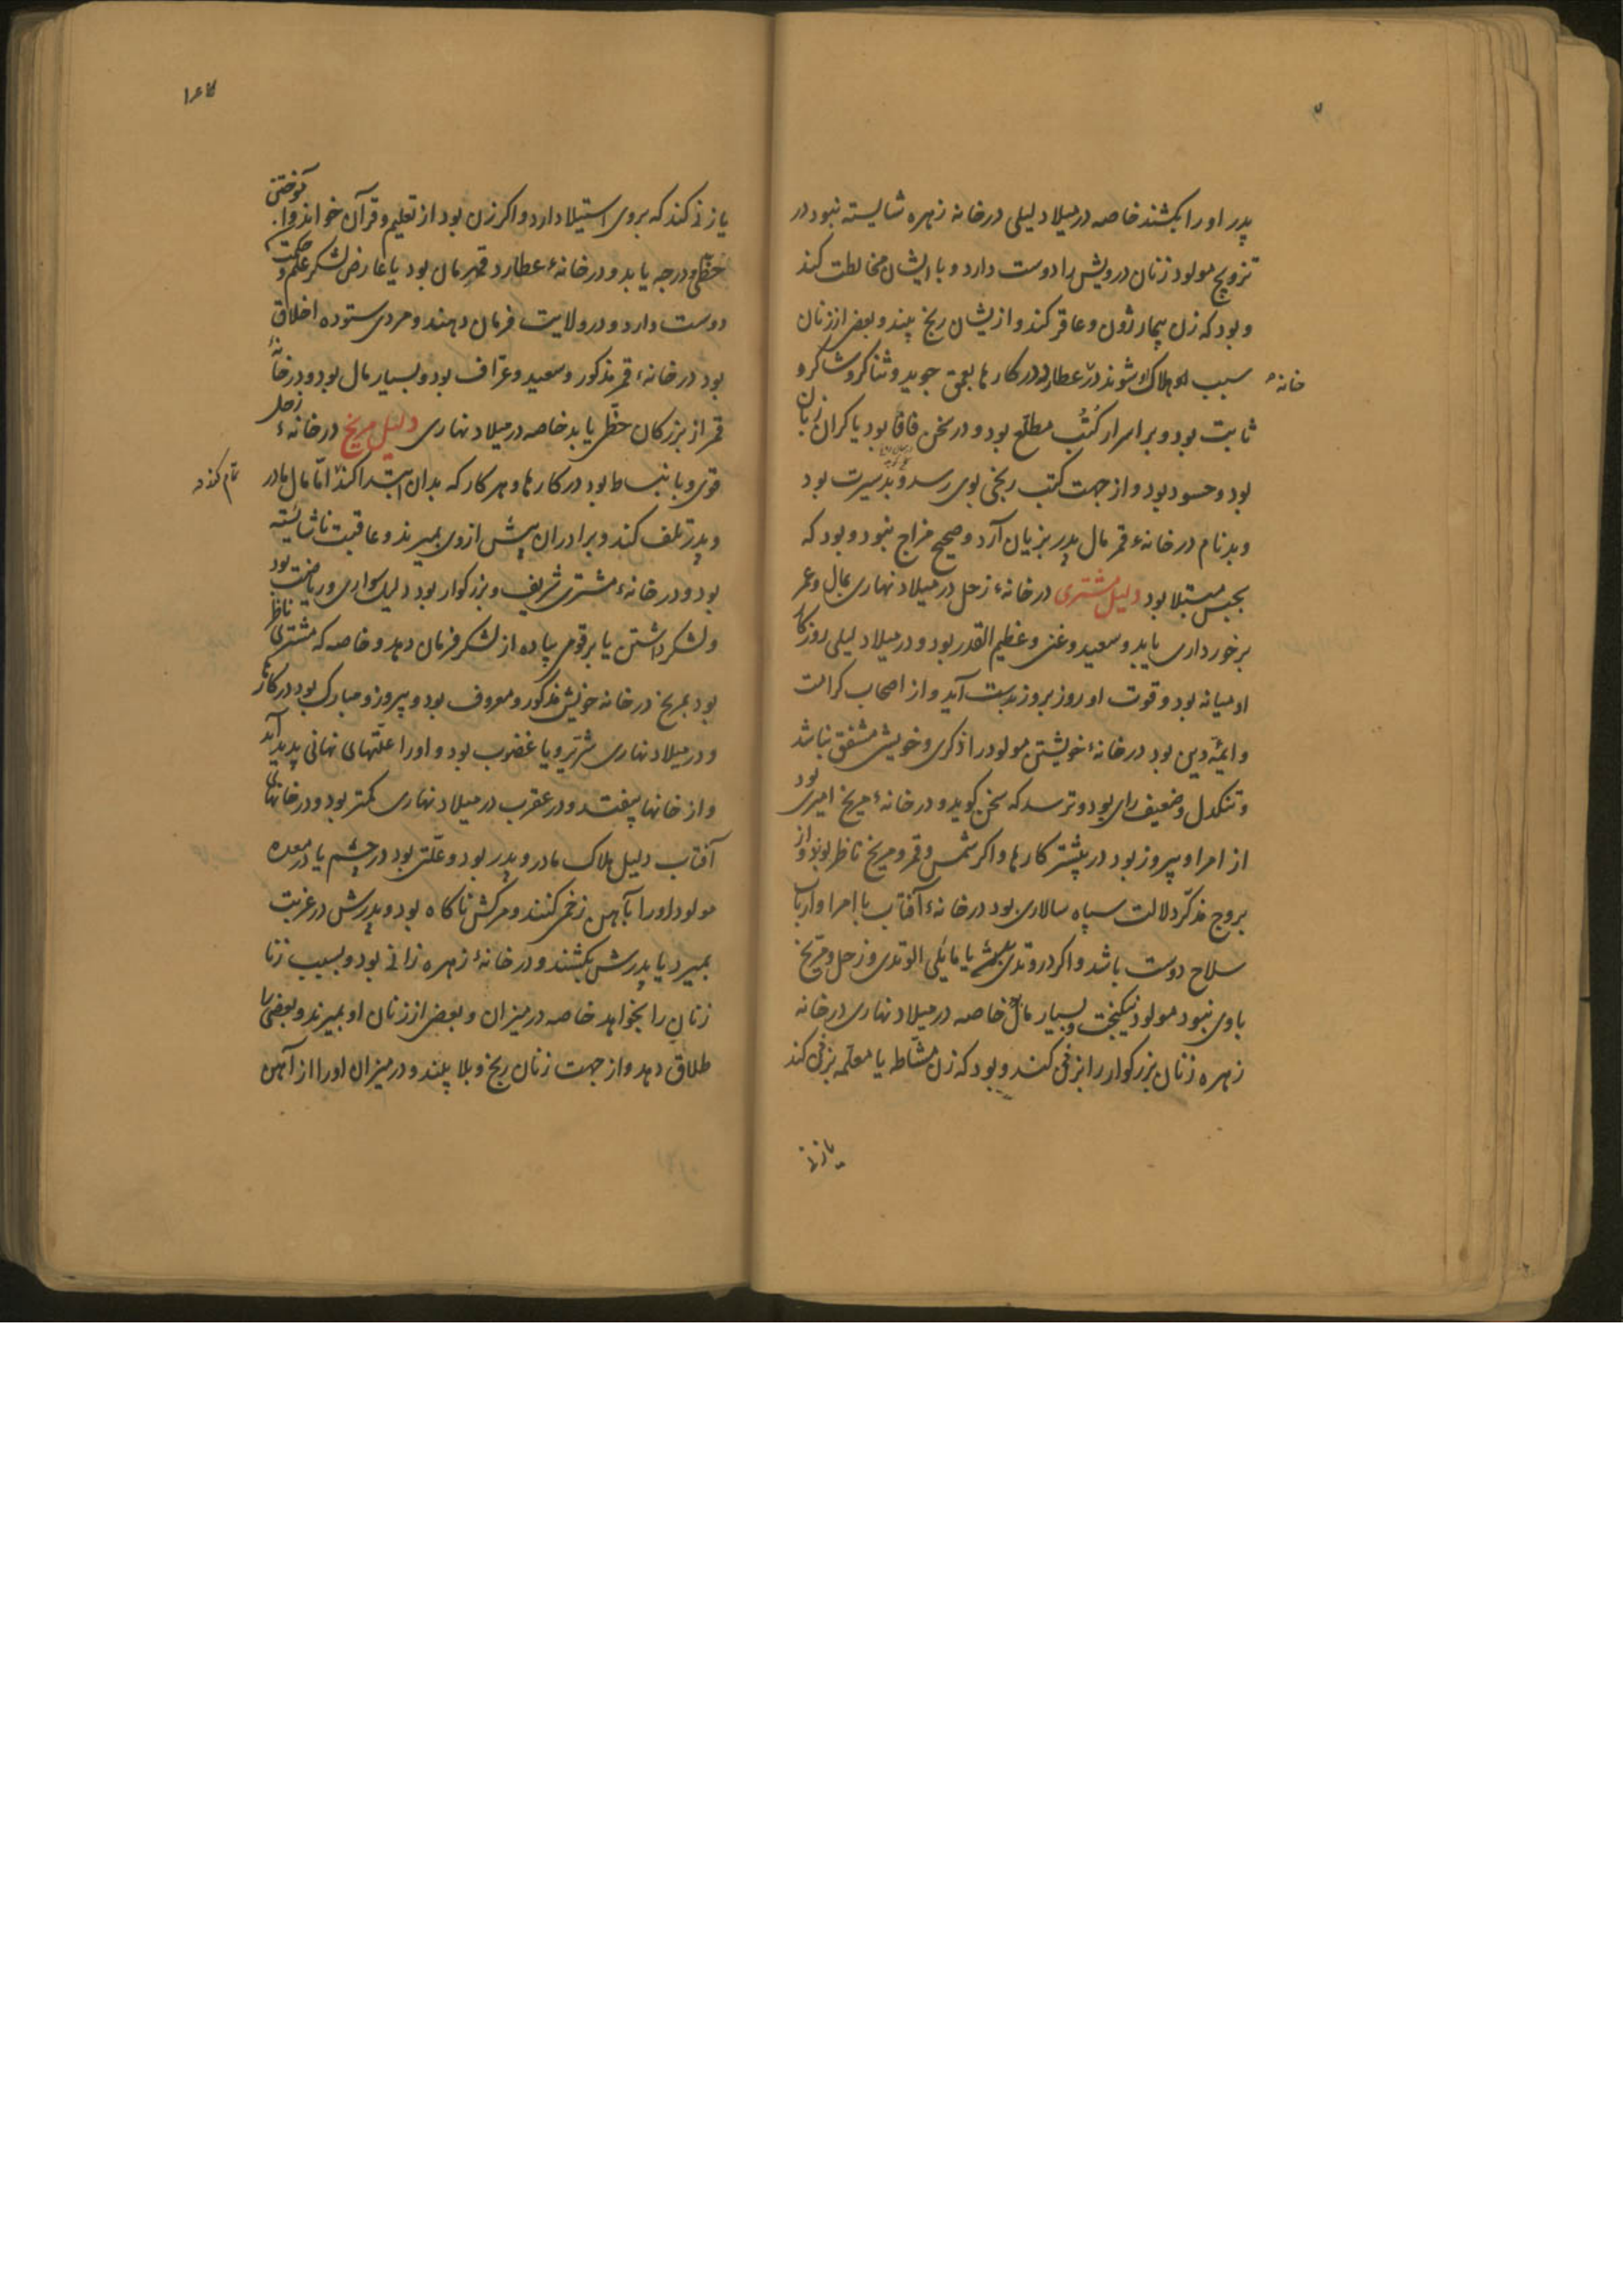 پدر او را بکشند خاصه در میلاد لیلی در خانه زهره شایسته نبود در
تزویج مولود زنان درویش را دوست دارد و با ایشان مخالطت کند
و بود که زن بیمار زون و عاقر کند و از یشان رنج بیند و بعضی از زنان
سبب او هلاک شوند در عطارد در کارها بعمق جوید و شاکرو
خانهٔ
ثابت بود و بر اسرار کُتُب مطلع بود و در سخن فافا بود یا کران زبان
بود و حسود بود و از جهت کتب رنجی بوی رسد و بد سیرت بود
و بد نام در خانهٔ قمر مال پدر بزیان آرد و صحیح مزاج نبود و بود که
بحبس مبتلا بود دلیل مشتری در خانهٔ زحل در میلاد نهاری بمال و عمر
برخورداری یابد و سعید و غنی و عظیم القدر بود و در میلاد لیلی روزکار
او میانه بود و قوت او روز بروز بدست آید و از اصحاب کرامت
و ایمّه دین بود در خانهٔ خویشتن مولود را ذکری و خویش مشفق نباشد
و تنکدل و ضعیف رای بود و ترسد که سخن کوید و در خانهٔ مریخ امیری بود
از امرا و پیروز بود در بیشتر کارها و اکر شمس و قمر و مریخ ناظر بوند و از
بروج مذکّر دلالت سپاه سالاری بود در خانهٔ آفتاب با امرا و ارباب
سلاح دوست باشد و اکر در وتدی یا مایلی الوتدی و زحل و مریخ
با وی نبود مولود نیکبخت و بسیار مال خاصه در میلاد نهاری در خانه
زهره زنان بزرکوار را بزنی کند و بود که زن مشّاطه یا معلّمه بزنی کند
یا زنی
۱۶۷
یا زنی کند که بر وی استیلا دارد و اکر زن بود از تعلیم و قرآن خواندن و آموختن
حظّی و درجه یابد و در خانهٔ عطارد قهرمان بود یا عارض لشکر علم و حکمت
دوست دارد و در ولایت فرمان دهند و مردی ستوده اخلاق
بود در خانهٔ قمر مذکور و سعید و عرّاف بود و بسیار مال بود و در خانهٔ
قمر از بزرکان حظّی یابد خاصه در میلاد نهاری دلیل مریخ در خانهٔ زحل
قوی و با نبساط بود در کارها و هر کار که بدان ابتدا کند امّا مال مادر
تمام کند
و پدر تلف کند و برادران پیش از وی بمیرند و عاقبت ناشایسته
بود و در خانهٔ مشتری شریف و بزرکوار بود دلیل سواری و ریاضت بود
و لشکر داشتن یا بر قومی پیاده از لشکر فرمان دهد و خاصه که مشتری ناظر
بود بمریخ در خانه خویش مذکور و معروف بود و پیروز و مبارک بود در کارها
و در میلاد نهاری شریر و یا غضوب بود و او را علّتهای نهانی پدید آید
و از خانها بیفتد و در عقرب در میلاد نهاری کمتر بود و در خانهای
آفتاب دلیل هلاک مادر و پدر بود و علّتی بود در چشم یا در معده
مولود او را بآهن زخمی کنند و مرکش ناکاه بود و پدرش در غربت
بمیرد یا پدرش بکشند و در خانهٔ زهره زانی بود و بسبب زنا
زنان را بخواهد خاصه در میزان و بعضی از زنان او بمیرند و بعضی را
طلاق دهد و از جهت زنان رنج و بلا بیند و در میزان او را از آهن